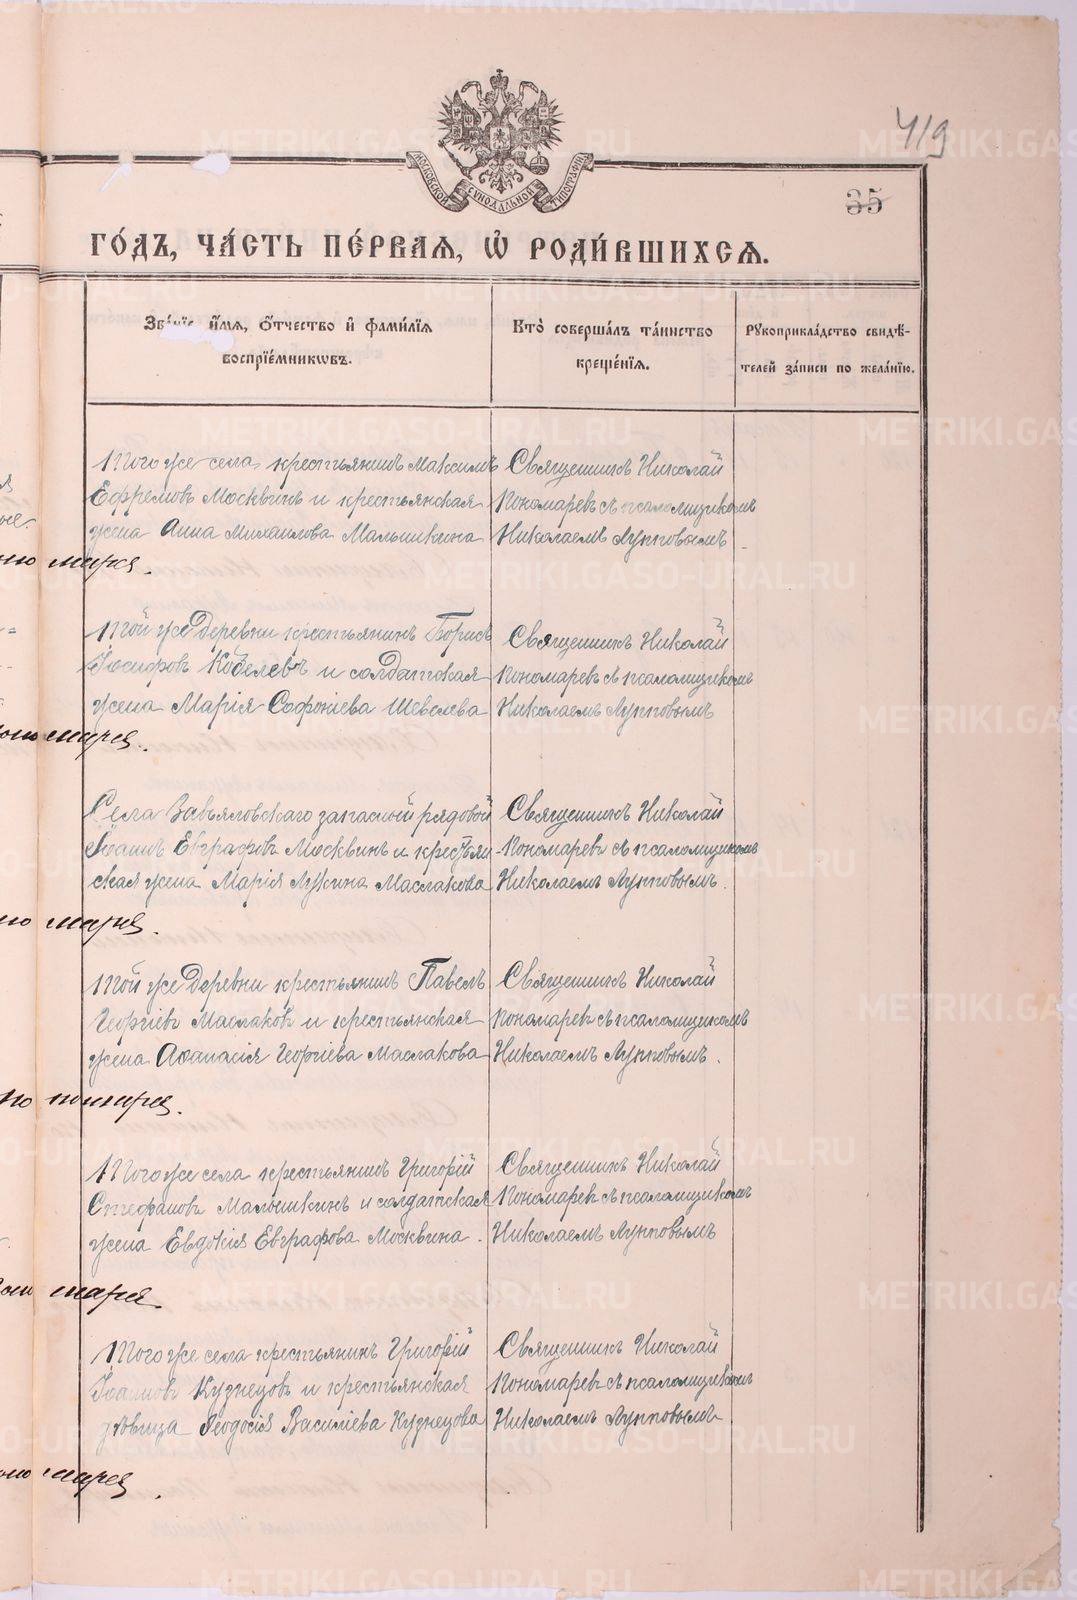 METRIKI.GASO-URAL.RU
МОСКОВСКОЙ СѴНОДАЛЬНОЙ ТИПОГРАФІИ
419
35
ГО́ДЪ, ЧА́СТЬ ПЕ́РВАѦ, Ѡ҆ РОДИ́ВШИХСѦ.
Зва́нїе, и҆́мѧ, ѻ҆́тчество и҆ фами́лїѧ
воспрїе́мникѡвъ.
Кто̀ соверша́лъ та́инство
креще́нїѧ.
Рꙋкоприкла́дство свидѣ́-
телей за́писи по жела́нїю.
Того же села крестьянинъ Максимъ
Ефремовъ Москвинъ и крестьянская
жена Анна Михаилова Малышкина
Священникъ Николай
Пономаревъ съ псаломщикомъ
Николаемъ Лупповымъ
марея.
Той же деревни крестьянинъ Борисъ
Іосифовъ Кобелевъ и солдатская
жена Марія Софоніева Шевелева
Священникъ Николай
Пономаревъ съ псаломщикомъ
Николаемъ Лупповымъ
Села Завьяловскаго запасной рядовой
Іоаннъ Евграфовъ Москвинъ и крестьян-
ская жена Марія Лукина Маслакова
Священникъ Николай
Пономаревъ съ псаломщикомъ
Николаемъ Лупповымъ.
Той же деревни крестьянинъ Павелъ
Георгіевъ Маслаковъ и крестьянская
жена Аѳанасія Георгіева Маслакова
Священникъ Николай
Пономаревъ съ псаломщикомъ
Николаемъ Лупповымъ.
Того же села крестьянинъ Григорій
Стефановъ Малышкинъ и солдатская
жена Евдокія Евграфова Москвина.
Священникъ Николай
Пономаревъ съ псаломщикомъ
Николаемъ Лупповымъ
Того же села крестьянинъ Григорій
Іоанновъ Кузнецовъ и крестьянская
дѣвица Ѳеодосія Василіева Кузнецова
Священникъ Николай
Пономаревъ съ псаломщикомъ
Николаемъ Лупповымъ